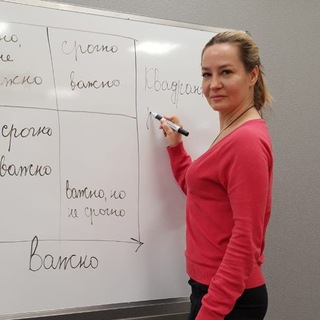 но,
не
важно
срочно
важно
Квадран
срочно
важно
важно, но
не срочно
Важно